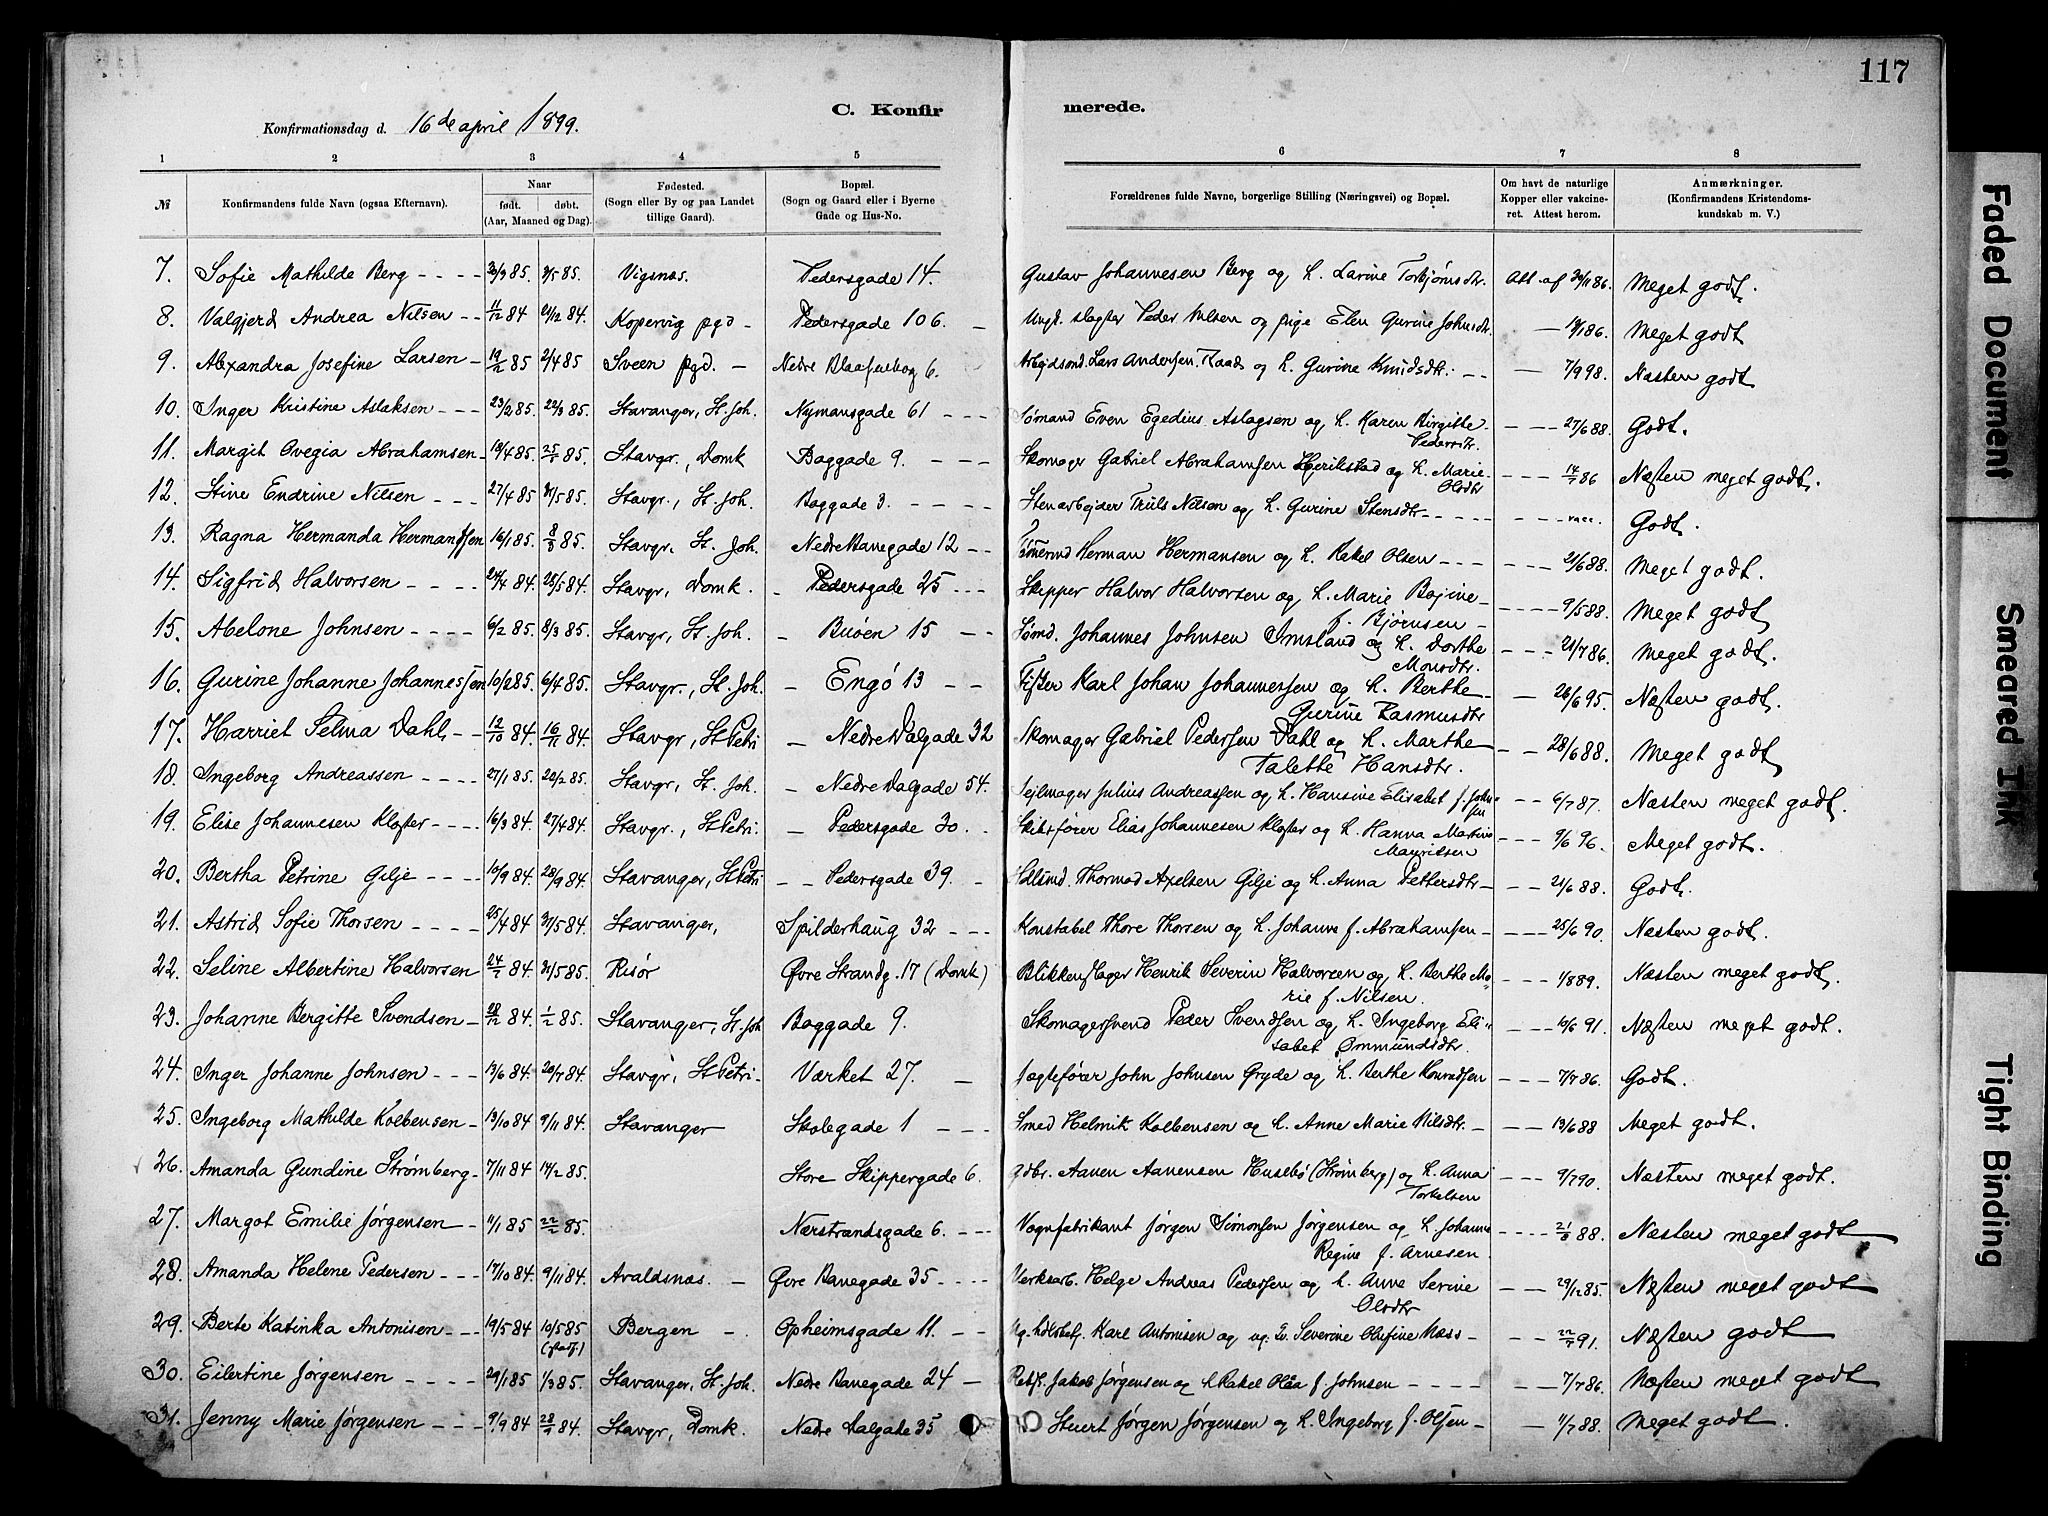 117
C. Konfirmerede.
Konfirmationsdag d. 16de april 1899.
1 2 3 4 5 6 7 8
№ Konfirmandens fulde Navn (ogsaa Efternavn). Naar født. døbt. (Aar, Maaned og Dag). Fødested. (Sogn eller By og paa Landet tillige Gaard). Bopæl. (Sogn og Gaard eller i Byerne Gade og Hus-No. Forældrenes fulde Navne, borgerlige Stilling (Næringsvei) og Bopæl. Om havt de naturlige Kopper eller vakcineret. Attest herom. Anmærkninger. (Konfirmandens Kristendomskundskab m. V.)
7. Sofie Mathilde Berg 85. 3/5 85. Vigsnæs. Pedersgade 14. Gustav Johannesen Berg og h. Larine Torbjørnsdtr. Att. af 86. Meget godt.
8. Valgjerd Andrea Nilsen 11/12 84 21/12 84. Kopervig pgd Pedersgade 106. Ungk. slagter Peder Nilsen og pige Elen Gurine Johnsdtr. 86. Meget godt
9. Alexandra Josefine Larsen 19/2 85 2/4 85 Sveen pgd. Nedre Blaasenborg 6. Arbejdsmd. Lars Andersen Raad og h. Gurine Knudsdtr. 7/9 98. Næsten godt
10. Inger Kristine Aslaksen 23/2 85. 22/3 85. Stavanger, St. Joh. Nymansgade 61 Sømand Even Egedius Aslagsen og h. Karen Birgitte Pedersdtr. 27/6 88. Godt.
11. Margit Ovegia Abrahamsen 19/4 85. 25/5 85. Stavgr., Domk Baggade 9. Skomager Gabriel Abrahamsen Hgerikstad og h. Marie Olsdtr 86 Næsten meget godt.
12. Stine Endrine Nilsen 27/4 85 31/5 85. Stavgr., St. Joh. Baggade 3. Stenarbejder Truls Nilsen og h. Gurine Stensdtr vacc. Godt.
13. Ragna Hermanda Hermandsen 16/1 85. 8/3 85. Stavgr. St. Joh. Nedre Banegade 12 Tømermd Herman Hermansen og h. Rakel Olsen 21/6 88. Meget godt.
14. Sigfrid Halvorsen 24/4 84. 25/5 84. Stavgr, Domk. Pedersgade 25 Skipper Halvor Halvorsen og h. Marie Bojine f. Bjørnsen 9/5 88. Meget godt
15. Abelone Johnsen 6/2 85. 8/3 85. Stavgr, St. Joh. Buøen 15 Sømd. Johannes Johnsen Imsland og h. Dorthe Monsdtr. 21/7 86. Meget godt.
16. Gurine Johanne Johannessen 10/2 85. 6/4 85. Stavgr., St. Joh. Engø 13 Fisker Karl Johan Johannessen og h. Berthe Gurine Rasmusdtr 26/6 95. Næsten godt.
17. Harriet Selma Dahl 12/10 84. 16/11 84. Stavgr, St Petri Nedre Dalgade 32 Skomager Gabriel Pedersen Dahl og h. Marthe Talette Hansdtr. 28/6 88. Meget godt
18. Ingeborg Andreassen 27/1 85. 22/2 85. Stavgr, St. Joh. Nedre Dalgade 54. Sejlmager Julius Andreassen og h. Hansine Elisabet f. Johnsen 6/7 87. Næsten meget godt.
19. Elise Johannesen Kloster 16/3 84. 27/4 84. Stavgr., St Petri. Pedersgade 30. Skibsfører Elias Johannesen Kloster og h. Hanna Martine Mauritsen 9/6 96. Meget godt.
20. Bertha Petrine Gilje 10/9 84. 28/9 84. Stavanger, St Petri Pedersgade 39. Thormod Axelsen Gilje og h. Anna Pettersdtr 21/6 88. Godt.
21. Astrid Sofie Thorsen 25/4 84 31/5 84. Stavanger, Spilderhaug 32 Konstabel Thore Thorsen og h. Johanne f. Abrahamsen 25/6 90. Næsten godt.
22. Seline Albertine Halvorsen 24/7 84. 31/5 85. Risör Øvre Strandg. 17 (Domk) Blikkenslager Henrik Severin Halvorsen og h. Berthe Marie f. Nilsen. 1/8 89. Næsten meget godt.
23. Johanne Bergitte Svendsen 28/12 84. 1/2 85. Stavanger, St. Joh Baggade 9. Skomagersvend Peder Svendsen og h. Ingeborg Elisabet Ommundsdtr. 10/6 91. Næsten meget godt.
24. Inger Johanne Johnsen 13/6 84. 20/7 84. Stavgr, St Petri Værket 27. Jagtefører John Johnsen Gryde og h. Berthe Konradsen 7/7 86. Godt.
25. Ingeborg Mathilde Kolbensen 13/10 84 9/11 84. Stavanger Skolegade 1 Smed Helmik Kolbensen og h. Anne Marie Nilsdtr. 13/6 88 Meget godt.
26. Amanda Gundine Strømberg 7/11 84 14/2 85. Store Skippergade 6. Gdbr. Aanen Aanensen Husebö (Strømberg) og h. Anna Torkelsen 9/7 90. Næsten meget godt.
27. Margot Emilie Jørgensen 11/1 85 22/2 85. Nærstrandsgade 6. Vognfabrikant Jørgen Simonsen Jørgensen og h. Johanne Regine f. Arnesen. 88. Næsten meget godt
28. Amanda Helene Pedersen 17/10 84. 9/11 84. Avaldsnæs. Øvre Banegade 35 Verksarb. Helge Andreas Pedersen og h. Anne Serine Olsdtr 29/12 85. Næsten meget godt
29. Berte Katinka Antonisen 19/5 84 10/5 85 Bergen Opheimsgade 11. Karl Antonisen og ug. Severine Olufine Næss 91. Næsten godt
30. Eilertine Jørgensen 29/1 85 1/3 85. Stavanger, St. Joh. Nedre Banegade 24 Jakob Jørgensen og h. Rakel Olâa f. Johnsen 7/7 86. Næsten meget godt
31. Jenny Marie Jørgensen 9/9 84 28/9 84. Stavgr, Domk. Nedre Dalgade 35 Stuert Jørgen Jørgensen og h. Ingeborg f. Olsen 11/7 88. Meget godt.
Faded Document
Smeared Ink
Tight Binding